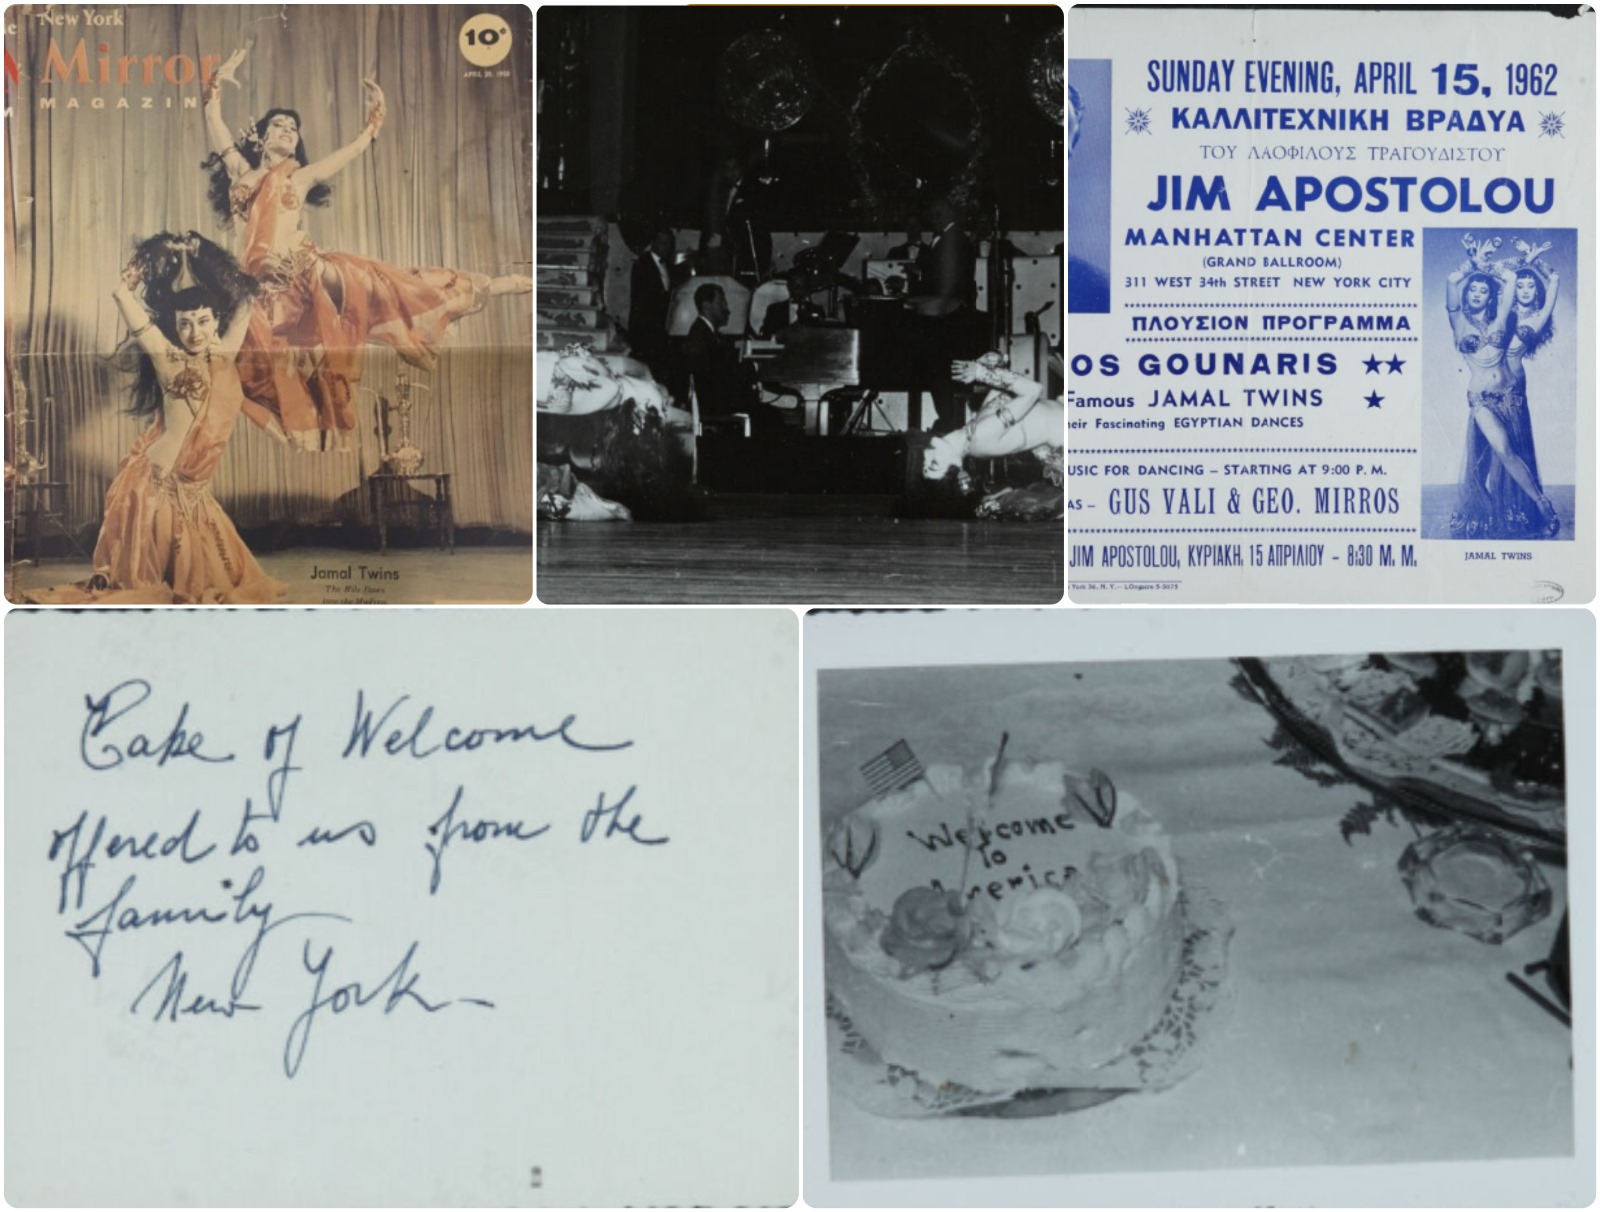 New York
Mirror
MAGAZIN
10¢
APRIL 20, 1958
Jamal Twins
The Nile flows
SUNDAY EVENING, APRIL 15, 1962
ΚΑΛΛΙΤΕΧΝΙΚΗ ΒΡΑΔΥΑ
ΤΟΥ ΛΑΟΦΙΛΟΥΣ ΤΡΑΓΟΥΔΙΣΤΟΥ
JIM APOSTOLOU
MANHATTAN CENTER
(GRAND BALLROOM)
311 WEST 34th STREET NEW YORK CITY
ΠΛΟΥΣΙΟΝ ΠΡΟΓΡΑΜΜΑ
OS GOUNARIS
Famous JAMAL TWINS
eir Fascinating EGYPTIAN DANCES
USIC FOR DANCING – STARTING AT 9:00 P. M.
AS – GUS VALI & GEO. MIRROS
JIM APOSTOLOU, ΚΥΡΙΑΚΗ, 15 ΑΠΡΙΛΙΟΥ – 8:30 Μ. Μ.
JAMAL TWINS
York 36, N. Y. – LOngacre 5-5075
Cake of Welcome
offered to us from the
family
New York –
Welcome
to
America